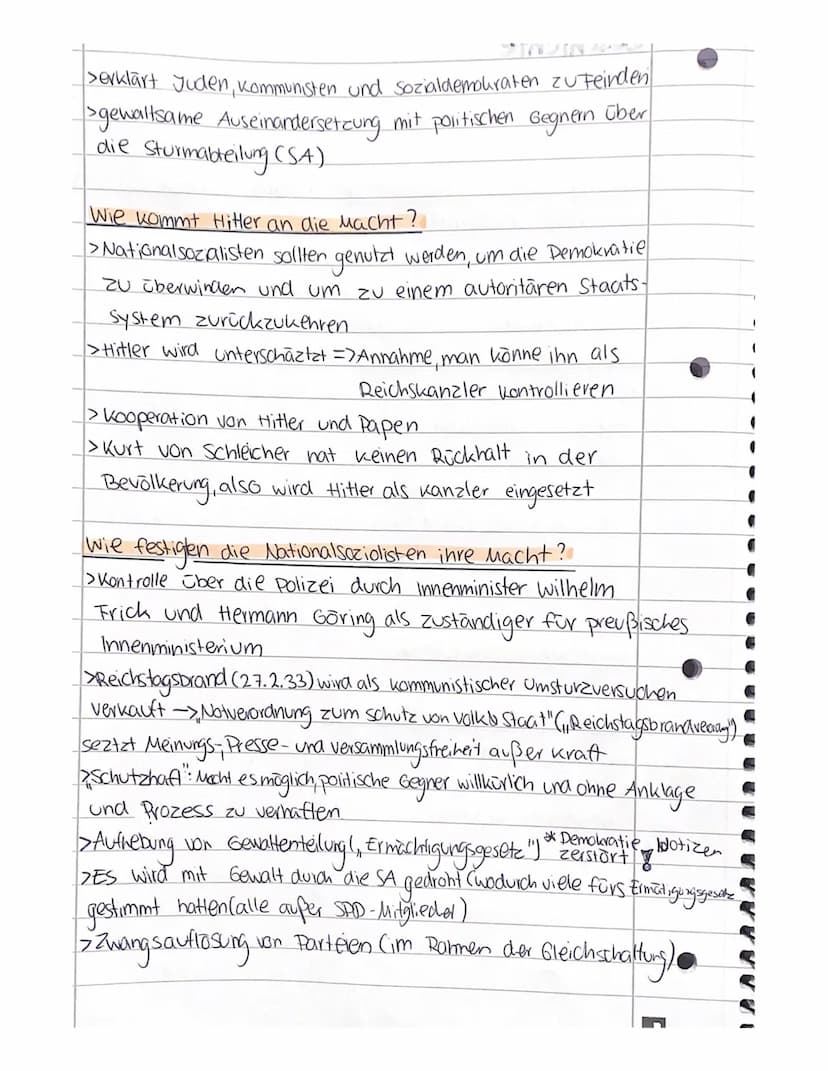 >erklärt Juden, Kommunsten und Sozialdemokraten zu Feinden
>gewaltsame Auseinandersetzung mit politischen Gegnern über
die Sturmabteilung (SA)
Wie kommt Hitler an die Macht?
>Nationalsozalisten sollten genutzt werden, um die Demokratie
zu überwinden und um zu einem autoritären Staats-
system zurückzukehren
>Hitler wird unterschäztzt =>Annahme, man könne ihn als
Reichskanzler kontrollieren
>Kooperation von Hitler und Papen
>Kurt von Schleicher hat keinen Rückhalt in der
Bevölkerung, also wird Hitler als Kanzler eingesetzt
Wie festigen die Nationalsozialisten ihre Macht?
>Kontrolle über die Polizei durch Innenminister Wilhelm
Frick und Hermann Göring als zuständiger für preußisches
Innenministerium
>Reichstagsbrand (27.2.33) wird als kommunistischer Umsturzversuchen
verkauft -> „Notverordnung zum Schutz von Volk & Staat" („Reichstagsbrandveraog")
seztzt Meinungs-, Presse- und Versammlungsfreiheit außer Kraft
>„Schutzhaft": Macht es möglich, politische Gegner willkürlich und ohne Anklage
und Prozess zu verhaften
>Aufhebung von Gewaltenteilung („Ermächtigungsgesetz") * Demokratie Notizen
zerstört !
>Es wird mit Gewalt durch die SA gedroht (wodurch viele fürs Ermächtigungsgesetz
gestimmt hatten (alle außer SPD-Mitglieder)
>Zwangsauflösung von Parteien (im Rahmen der Gleichschaltung)